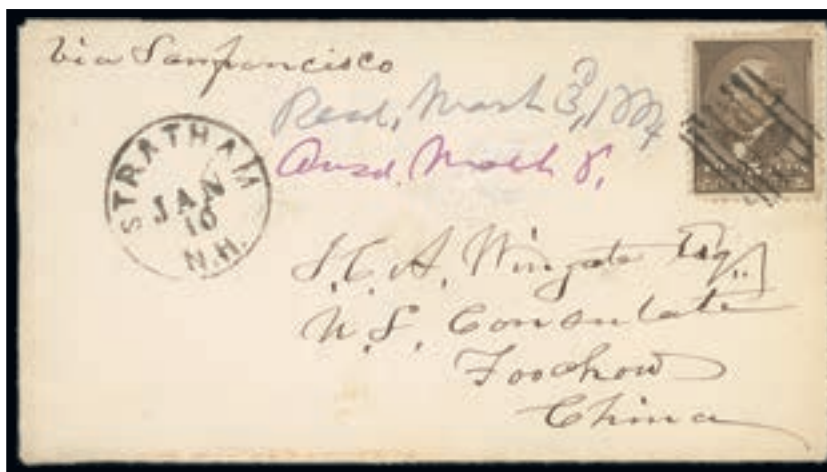 via Sanfrancisco
Recd, March 3, 1884
Ansd. March 8,
STRATHAM
JAN
10
N.H.
J. C. A. Wingate Esq.,
U. S. Consulate
Foochow
China